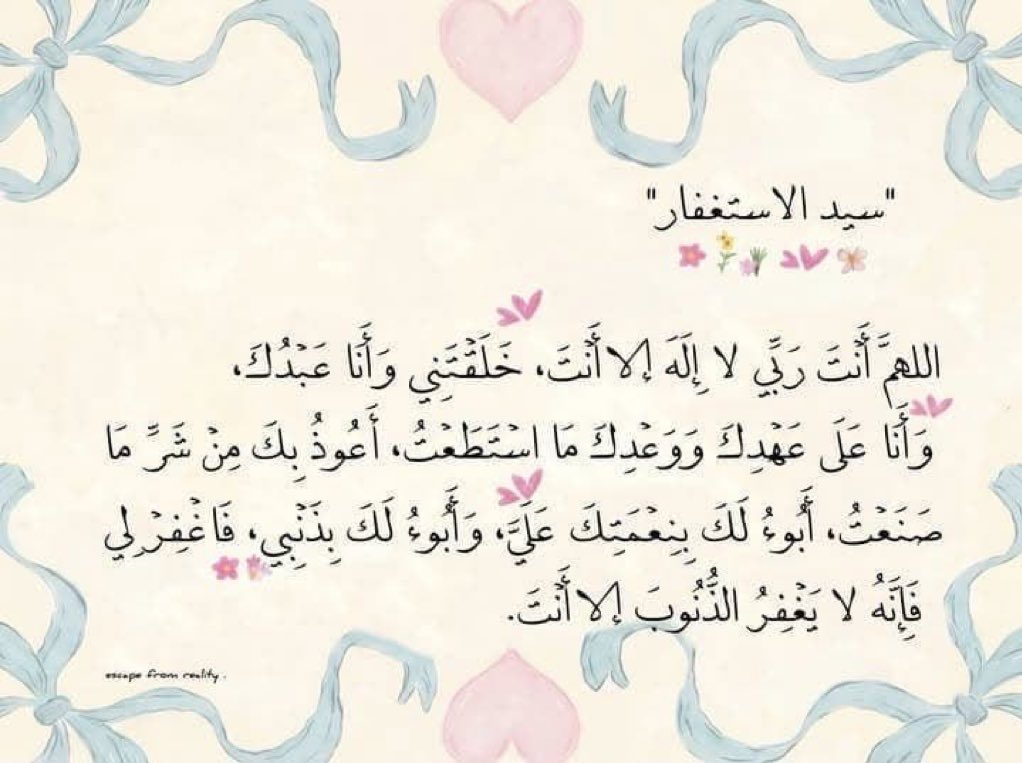 "سيد الاستغفار"
اللهمَّ أَنْتَ رَبِّي لا إِلَهَ إلا أَنْتَ، خَلَقْتَنِي وَأَنَا عَبْدُكَ،
وَأَنَا عَلَى عَهْدِكَ وَوَعْدِكَ مَا اسْتَطَعْتُ، أَعُوذُ بِكَ مِنْ شَرِّ مَا
صَنَعْتُ، أَبُوءُ لَكَ بِنِعْمَتِكَ عَلَيَّ، وَأَبُوءُ لَكَ بِذَنْبِي، فَاغْفِرْ لِي
فَإِنَّهُ لا يَغْفِرُ الذُّنُوبَ إلا أَنْتَ.
escape from reality.